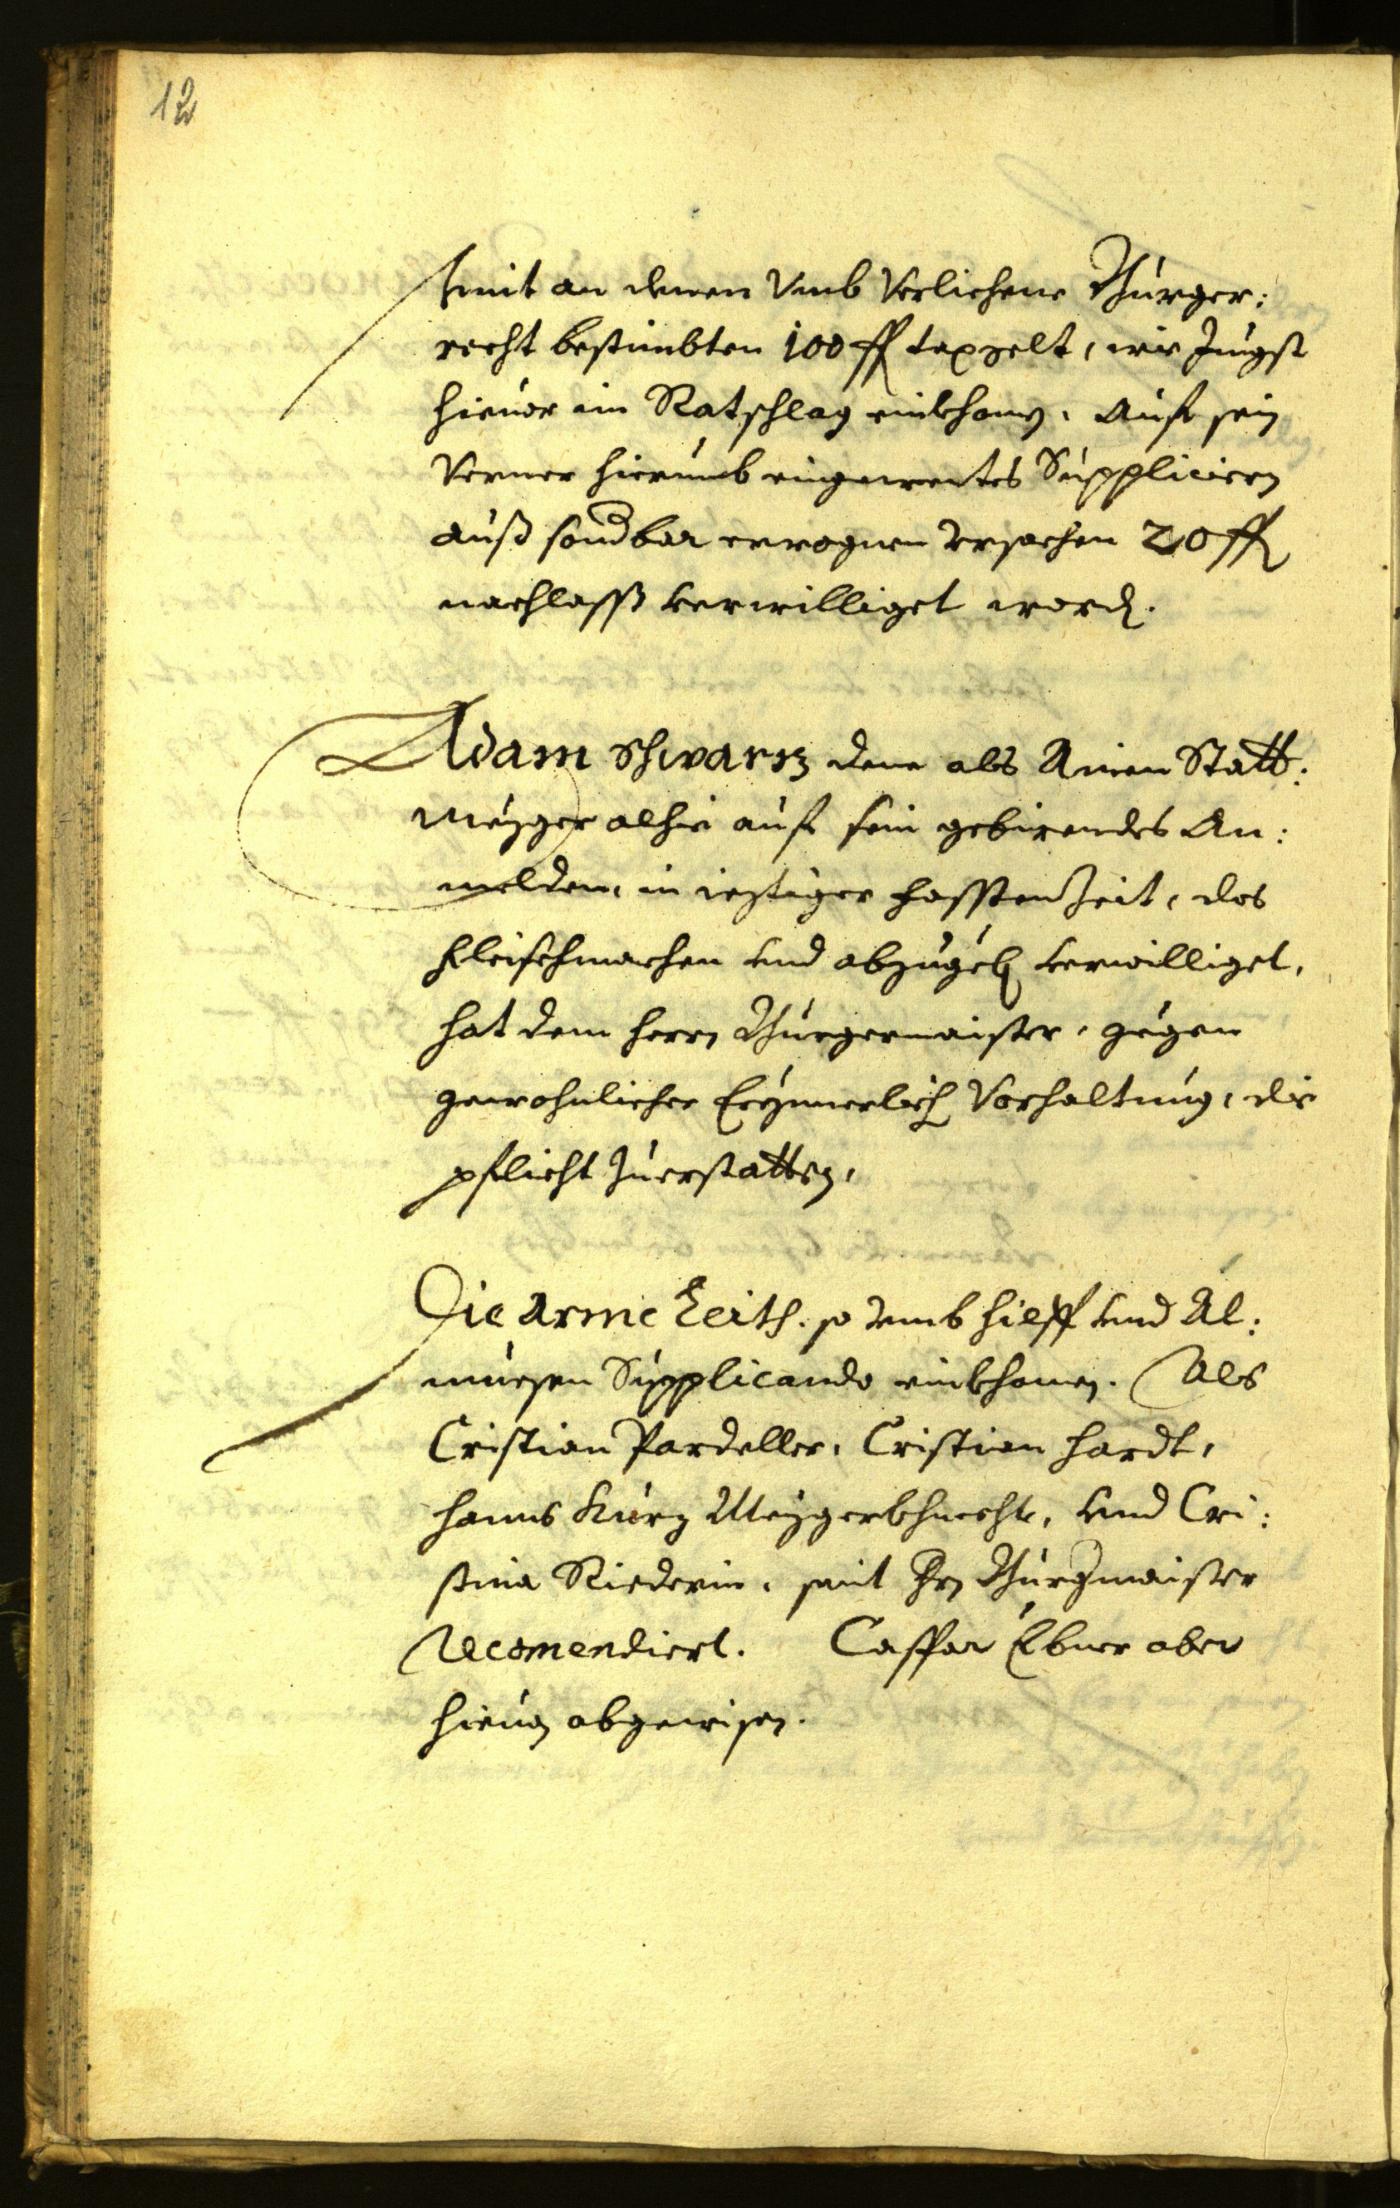 12
seint an denen Vmb Verlichene Purger:
recht bestimbten 100 ff taxgelt, wie Jungst
hieuor im Ratschlag einkhomen. Auf sein
Verner hierumb eingewentes Suppliciern
auß sondbar erwognen Vrsachen 20 ff
nachlasß verwilliget word.
Adam Schwartz deme als Ainen Statt:
Mezger alhie auf sein gebirendes An:
melden, in ieztiger Fassten Zeit, das
Fleischmachen vnd abzugeb verwilliget,
hat dem Herrn Purgermaister, gegen
gewohnlicher Erynnerlich Vorhaltung, die
pflicht Zuerstatten,
Die Arme Leith. so vmb hielff vnd Al:
muesen Supplicando einkhomen. Als
Cristian Pardeller, Cristian Hardt,
Hanns Kurz Mezgerkhnecht, vnd Cri:
stina Riederin, seint Hrn Purgmaister
Recomendiert. Casspar Ebner aber
hieuon abgewisen.